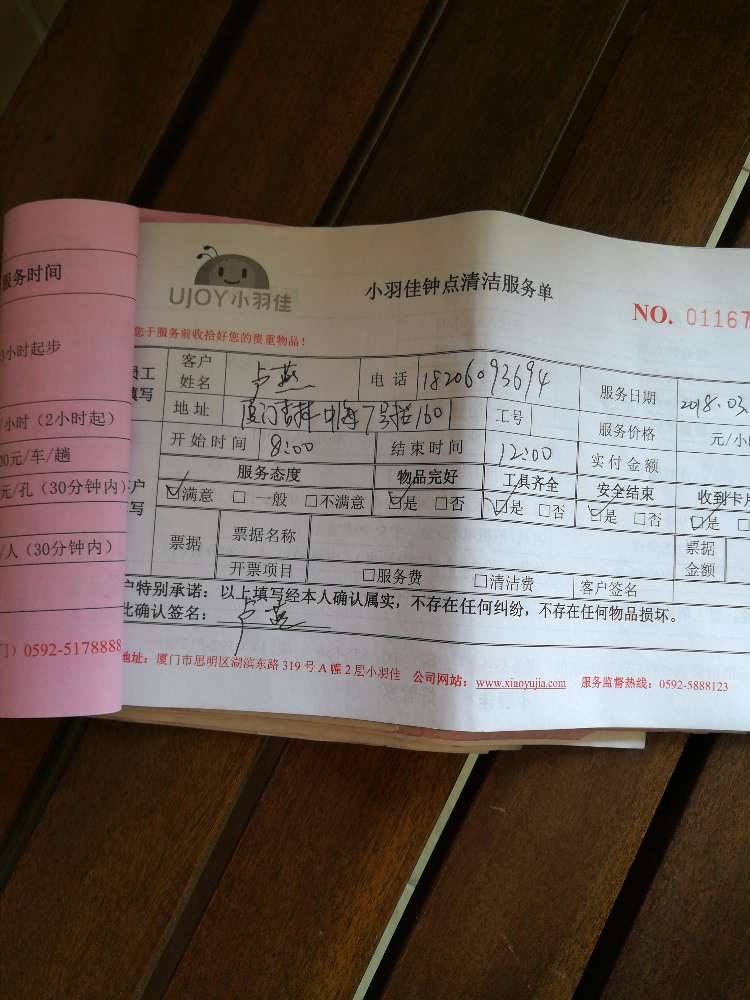 服务时间
小时起步
/小时（2小时起）
00元/车/趟
元/孔（30分钟内）
/人（30分钟内）
门）0592-5178888
UJOY小羽佳
小羽佳钟点清洁服务单
NO. 01167
您于服务前收拾好您的贵重物品！
员工填写 客户姓名 卢燕 电话 18206093694 服务日期 2018.03
地址 7号楼1601 工号 服务价格 元/小
开始时间 8:00 结束时间 12:00 实付金额
服务态度 物品完好 工具齐全 安全结束 收到卡片
☑满意 □一般 □不满意 ☑是 □否 ☑是 □否 ☑是 □否 ☑是 □
票据 票据名称 票据金额
开票项目 □服务费 □清洁费 客户签名
户特别承诺：以上填写经本人确认属实，不存在任何纠纷，不存在任何物品损坏。
此确认签名： 卢燕
地址：厦门市思明区湖滨东路 319 号 A 幢 2 层小羽佳 公司网站：www.xiaoyujia.com 服务监督热线：0592-5888123